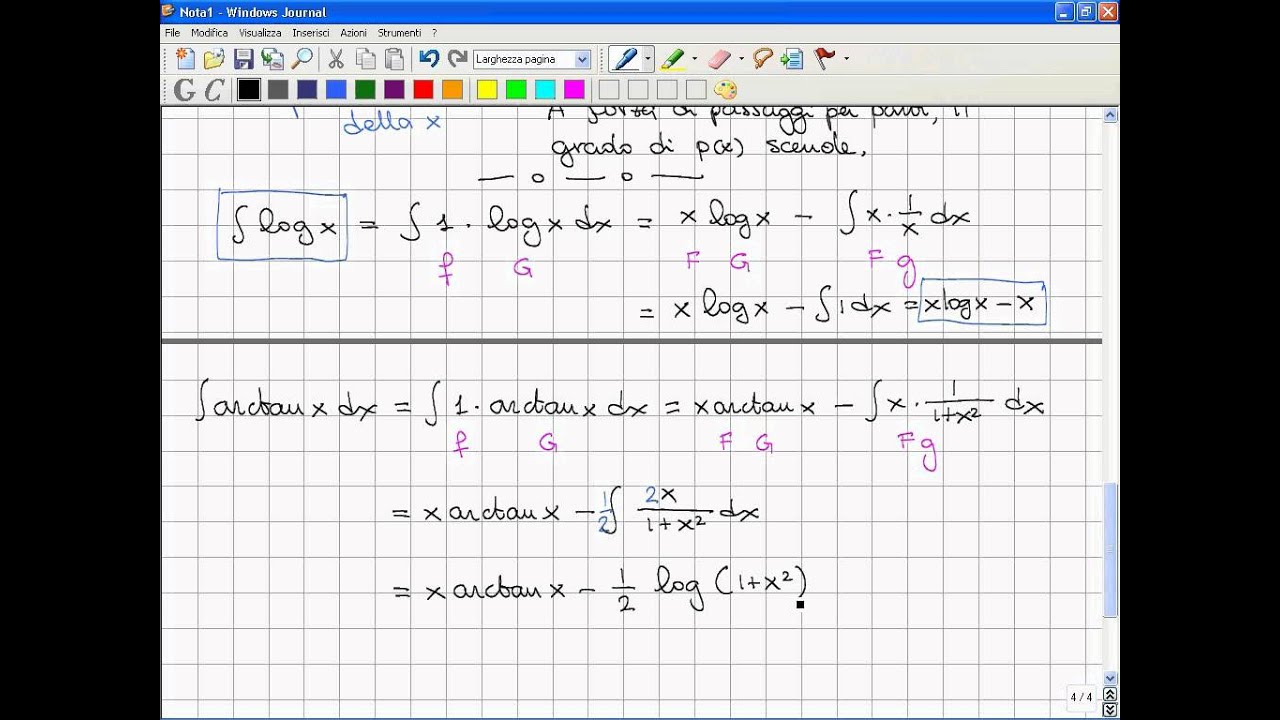 Nota1 - Windows Journal
File Modifica Visualizza Inserisci Azioni Strumenti ?
Larghezza pagina
G C
della x
A forza di passaggi per parti, il
grado di p(x) scende.
∫ log x = ∫ 1 · log x dx = x log x − ∫ x · 1/x dx
f G F G F g
= x log x − ∫ 1 dx = x log x − x
∫ arctan x dx = ∫ 1 · arctan x dx = x arctan x − ∫ x · 1/(1+x²) dx
f G F G F g
= x arctan x − 1/2 ∫ 2x/(1+x²) dx
= x arctan x − 1/2 log (1+x²)
4 / 4